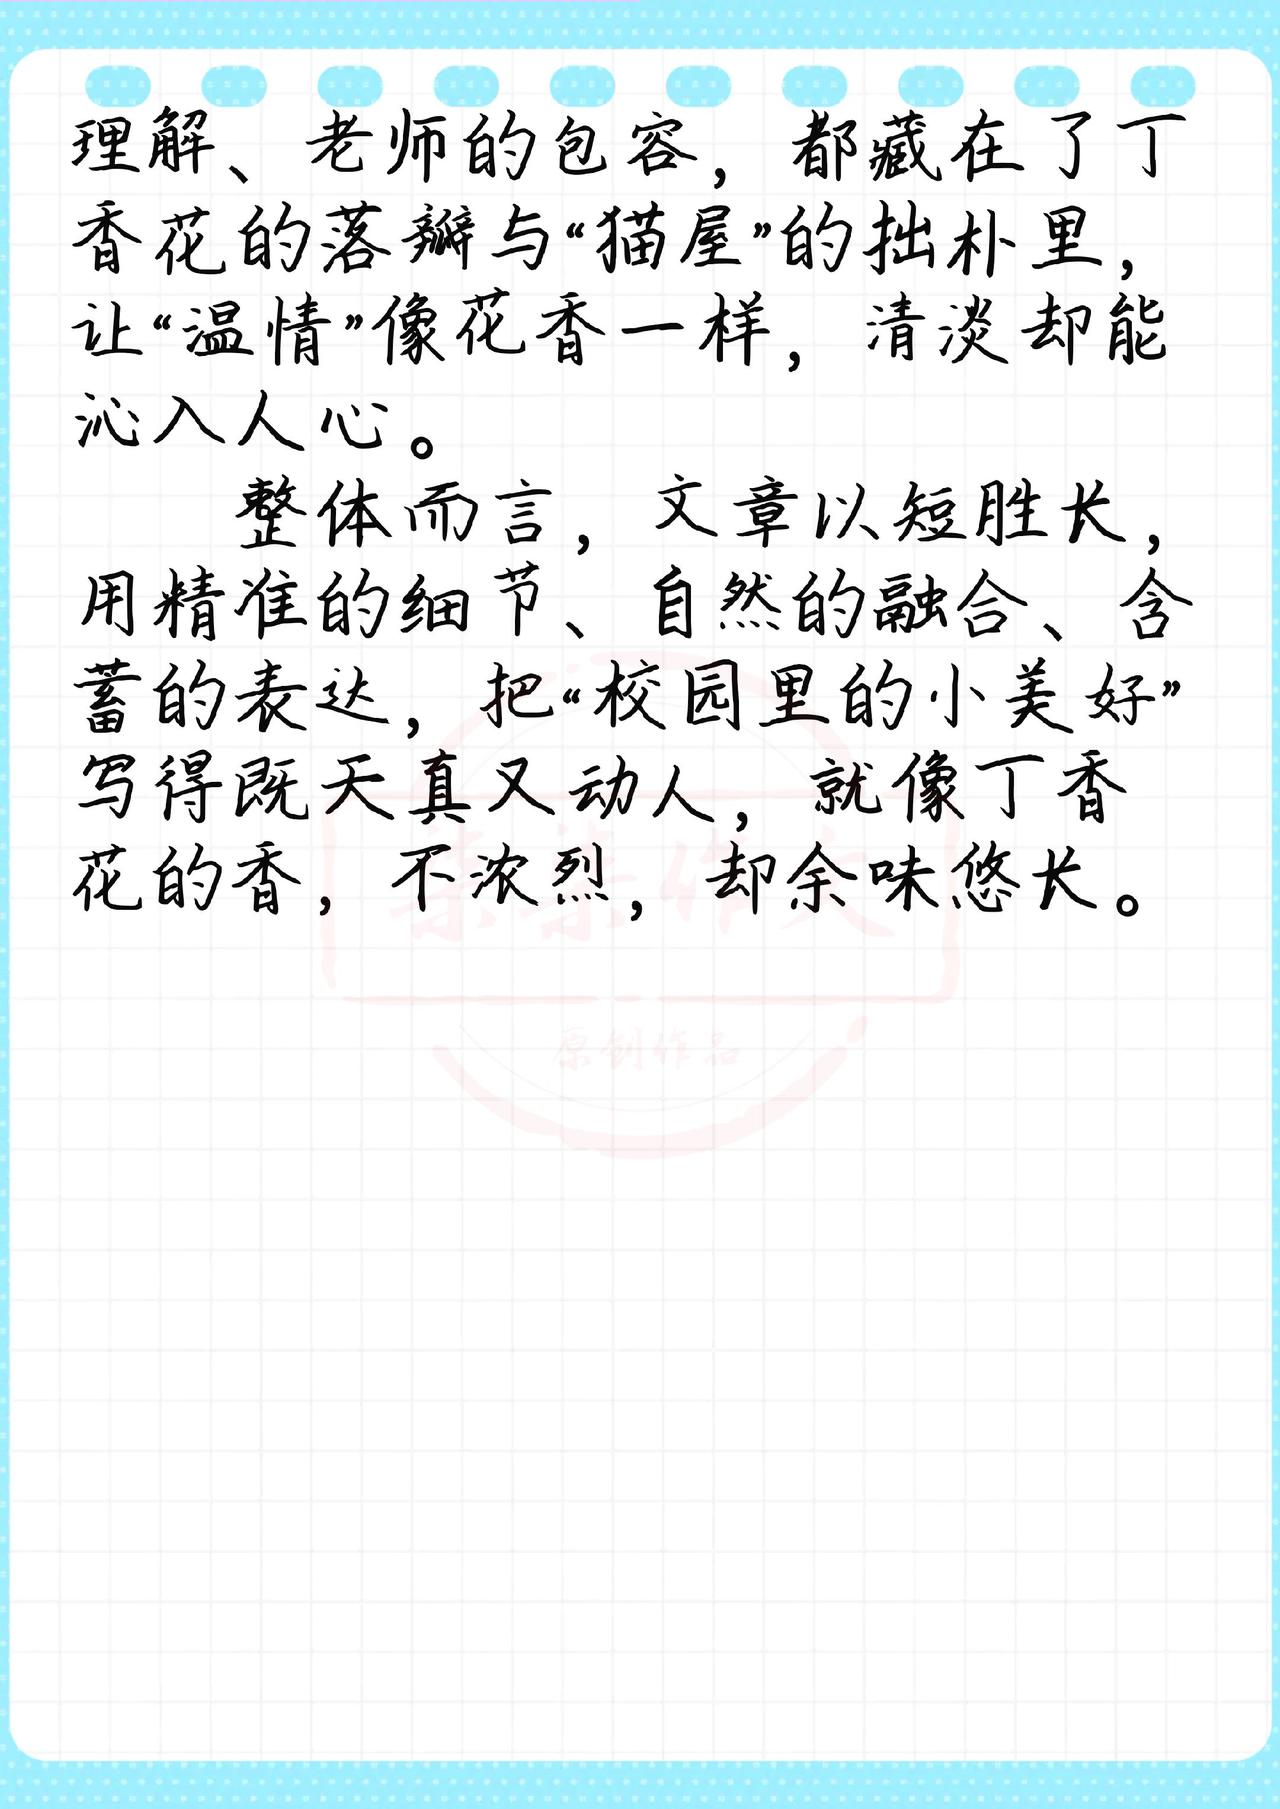 理解、老师的包容，都藏在了丁
香花的落瓣与“猫屋”的拙朴里，
让“温情”像花香一样，清淡却能
沁入人心。
整体而言，文章以短胜长，
用精准的细节、自然的融合、含
蓄的表达，把“校园里的小美好”
写得既天真又动人，就像丁香
花的香，不浓烈，却余味悠长。
柒柒作文
原创作品